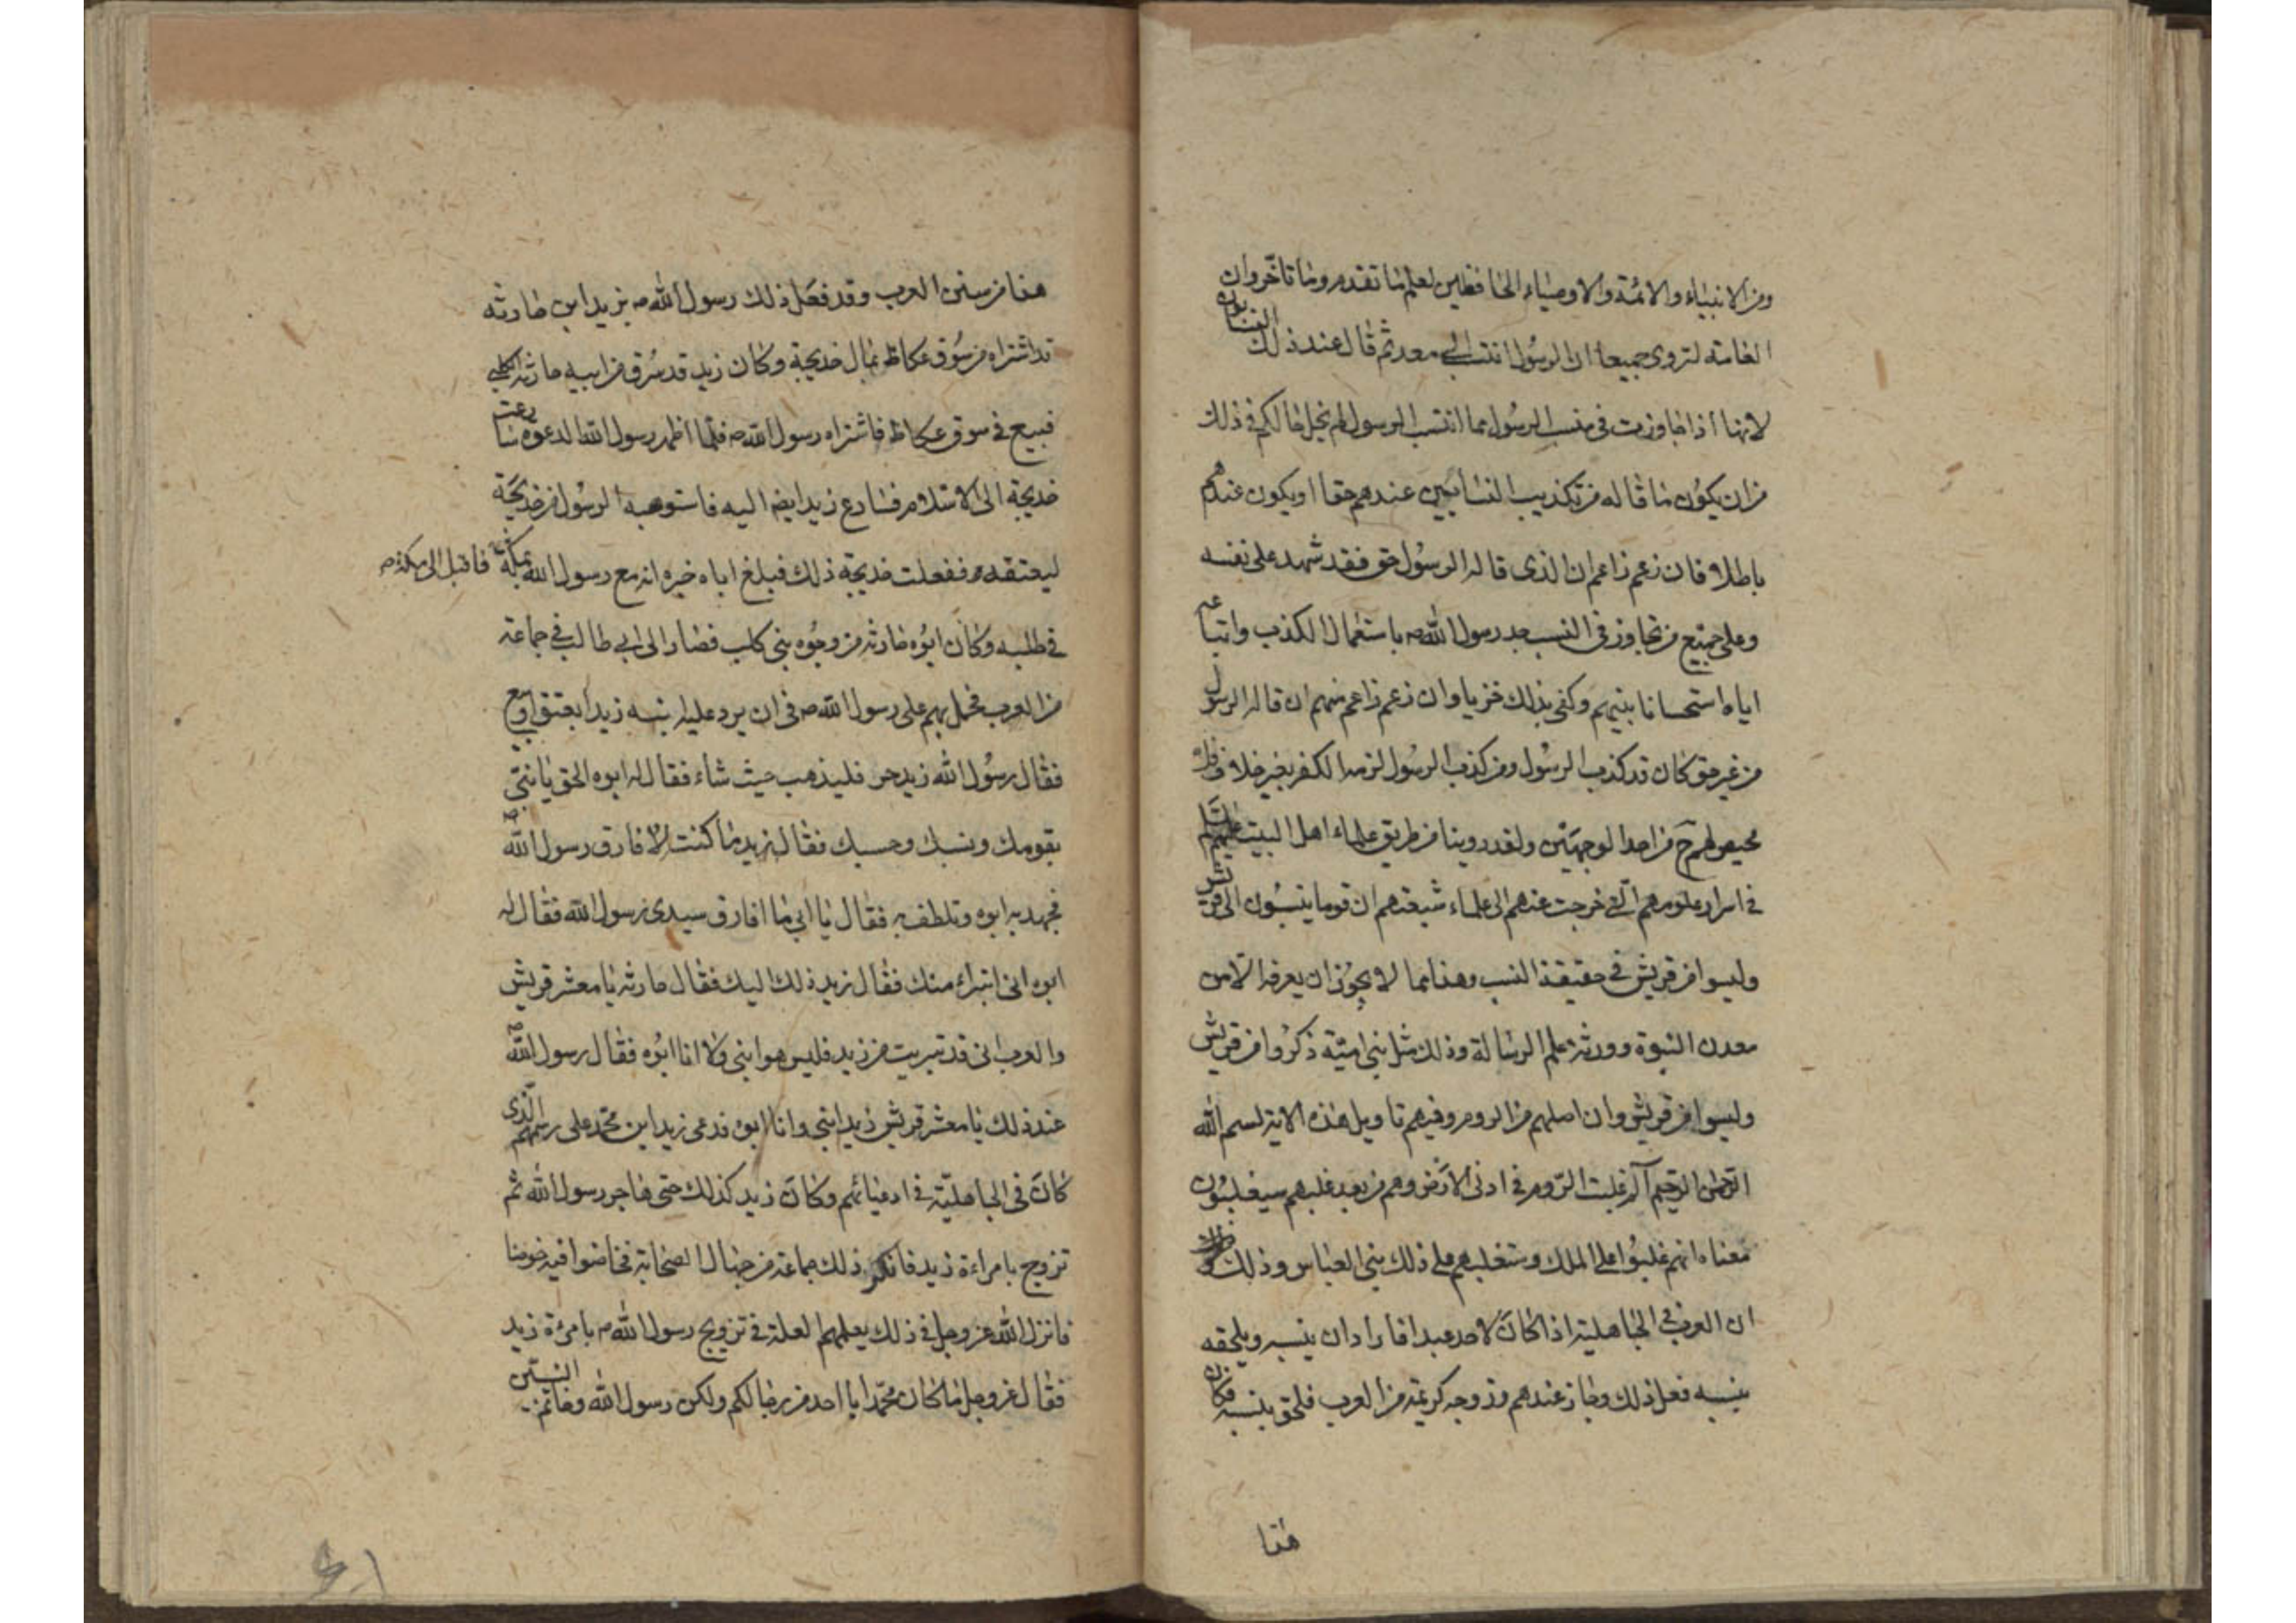 ومن الانبياء والائمة والاوصياء الحافظين لعلم ما تقدم وما تاخّر وان
العامة لتروى جميعا ان الرسول انتسب الى معد ثم قال عند ذلك
النسابون
لانها اذا جاوزت فى نسب الرسول مما انتسب الرسول لم يخل حالكم فى ذلك
من ان يكون ما قاله من تكذيب النسابين عندهم حقا او يكون عندهم
باطلا فان زعم زاعم ان الذى قاله الرسول حق فقد شهد على نفسه
وعلى جميع من تجاوز فى النسب جد رسول الله ص باستعمال الكذب واتباعه
اياه استحسانا بينهم وكفى بذلك خزيا وان زعم زاعم منهم ان قاله الرسول
من غير حق كان قد كذب الرسول ومن كذب الرسول لزمه الكفر بغير خلاف فلا
محيص لهم ح من احد الوجهين ولقد روينا من طريق علماء اهل البيت عليهم السلام
فى اسرار علومهم التى خرجت عنهم الى علماء شيعتهم ان قوما ينسبون الى قريش
وليسوا من قريش فى حقيقة النسب وهذا مما لا يجوز ان يعرفه الا من
معدن النبوة وورثة علم الرسالة وذلك مثل بنى امية ذكروا من قريش
وليسوا من قريش وان اصلهم من الروم وفيهم تاويل هذه الاية بسم الله
الرحمن الرحيم آلم غلبت الروم فى ادنى الارض وهم من بعد غلبهم سيغلبون
معناه انهم غلبوا على الملك وستغلبهم على ذلك بنى العباس وذلك
ان العرب فى الجاهلية اذا كان لاحد عبد فاراد ان ينسبه ويلحقه
بنسبه فعل ذلك وجاز عندهم وزوجه كريمة من العرب فلحق بنسبه فكان
هذا
هذا من سنن العرب وقد فعل ذلك رسول الله ص بزيد ابن حارثه
قد اشتراه من سوق عكاظ بمال خديجة وكان زيد قد سرق من ابيه حارثه الكلبى
فبيع فى سوق عكاظ فاشتراه رسول الله ص فلما اظهر رسول الله الدعوة سارعت
خديجة الى الاسلام فسارع زيد ايضا اليه فاستوهبه الرسول من خديجة
ليعتقه ففعلت خديجة ذلك فبلغ اباه خبره انه مع رسول الله بمكة فاقبل الى مكة ص
فى طلبه وكان ابوه حارثه من وجوه بنى كلب فصار الى ابى طالب فى جماعة
من العرب فحمل بهم على رسول الله ص فى ان يرد عليه ابنه زيدا بعتق او بيع
فقال رسول الله زيد حر فليذهب حيث شاء فقال له ابوه الحق يا بنىّ
بقومك ونسبك وحسبك فقال زيد ما كنت لافارق رسول الله ص
فجهد به ابوه وتلطف به فقال يا ابى ما افارق سيدى رسول الله فقال له
ابوه انى اتبراء منك فقال زيد ذلك اليك فقال حارثه يا معشر قريش
والعرب انى قد تبريت من زيد فليس هو ابنى ولا انا ابوه فقال رسول الله ص
عند ذلك يا معشر قريش زيد ابنى وانا ابوه فدعى زيد ابن محمّد على رسمهم الّذى
كان فى الجاهليّة فى ادعيائهم وكان زيد كذلك حتى هاجر رسول الله ثم
تزوج بامراءة زيد فانكر ذلك جماعة من جهال الصحابة فخاضوا فيه خوضا
فانزل الله عز وجل فى ذلك يعلمهم العلة فى تزويج رسول الله ص بامرءة زيد
فقال عز وجل ما كان محمّد ابا احد من رجالكم ولكن رسول الله وخاتم النبيّين